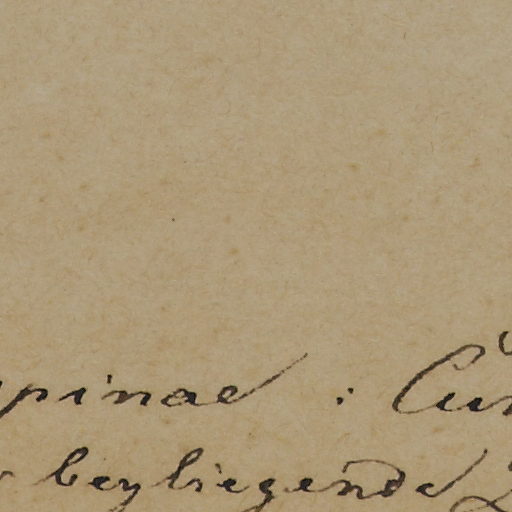 pinae : Cur
beyliegende